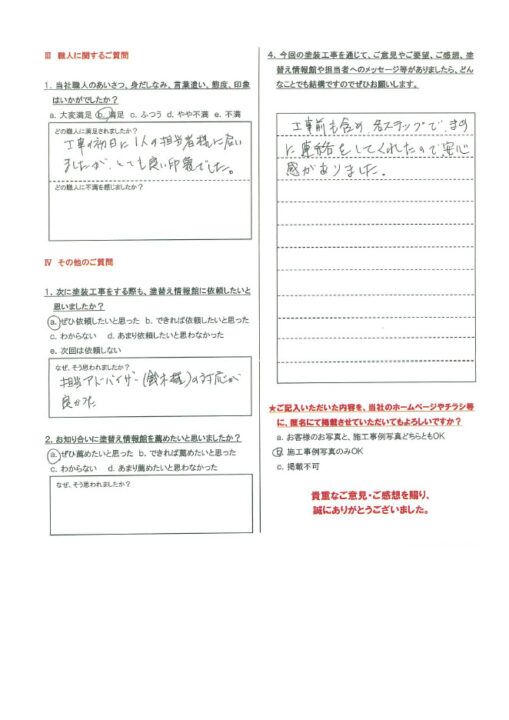 Ⅲ 職人に関するご質問
1. 当社職人のあいさつ、身だしなみ、言葉遣い、態度、印象
はいかがでしたか?
a. 大変満足 b. 満足 c. ふつう d. やや不満 e. 不満
どの職人に満足されましたか?
工事の初日に1人の担当者様に会い
ましたが、とても良い印象でした。
どの職人に不満を感じましたか?
Ⅳ その他のご質問
1. 次に塗装工事をする際も、塗替え情報館に依頼したいと
思いましたか?
a. ぜひ依頼したいと思った b. できれば依頼したいと思った
c. わからない d. あまり依頼したいと思わなかった
e. 次回は依頼しない
なぜ、そう思われましたか?
担当アドバイザー(鈴木様)の対応が
良かった
2. お知り合いに塗替え情報館を薦めたいと思いましたか?
a. ぜひ薦めたいと思った b. できれば薦めたいと思った
c. わからない d. あまり薦めたいと思わなかった
なぜ、そう思われましたか?
4. 今回の塗装工事を通じて、ご意見やご要望、ご感想、塗
替え情報館や担当者へのメッセージ等がありましたら、どん
なことでも結構ですのでぜひお願いします。
工事前も含め 各ステップで、
に連絡をしてくれたので、安心
感がありました。
★ご記入いただいた内容を、当社のホームページやチラシ等
に、匿名にて掲載させていただいてもよろしいですか?
a. お客様のお写真と、施工事例写真どちらともOK
b. 施工事例写真のみOK
c. 掲載不可
貴重なご意見・ご感想を賜り、
誠にありがとうございました。